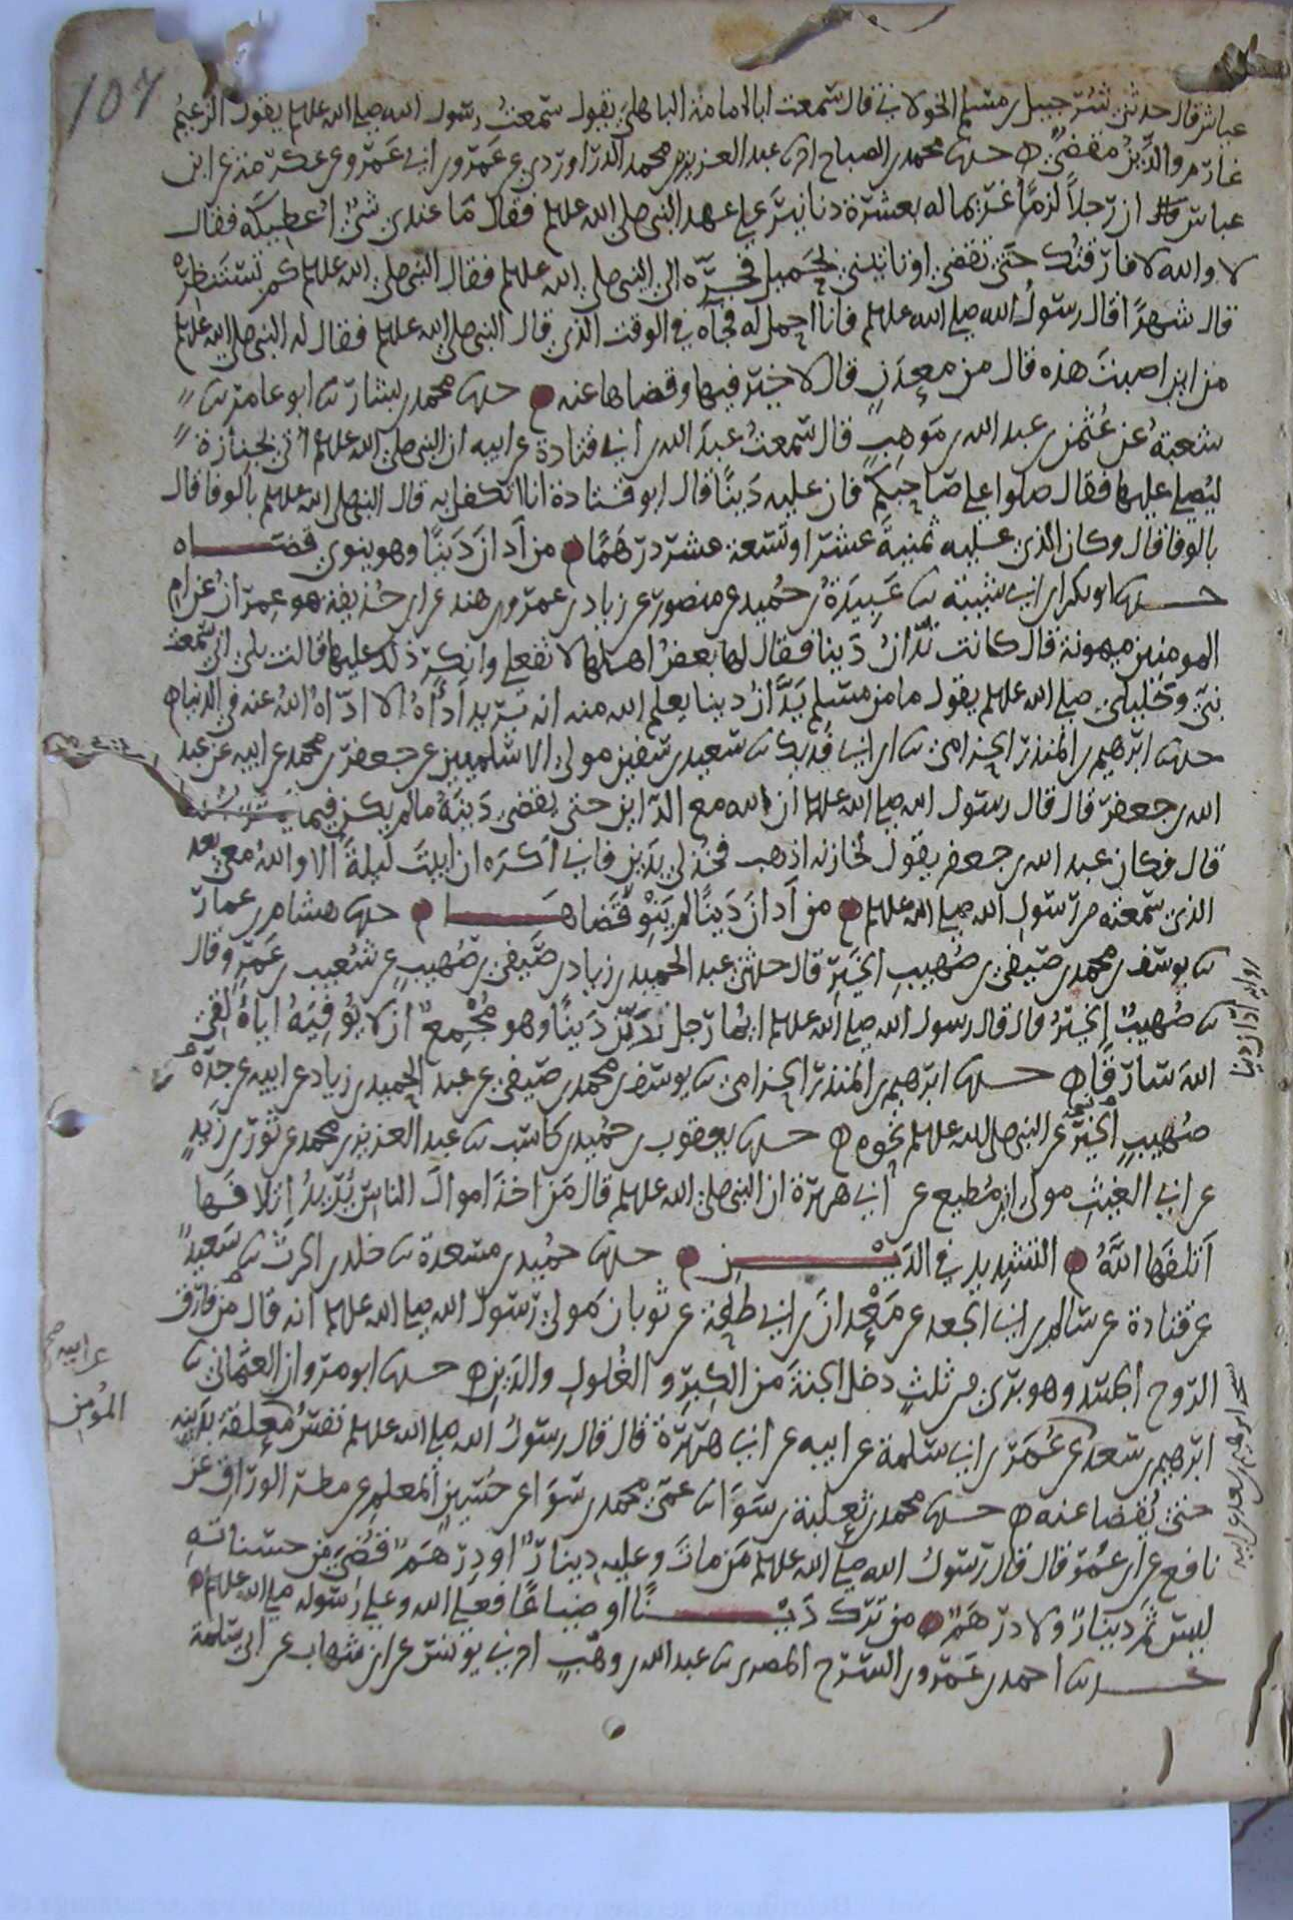 107
عياش قال حدثني شرحبيل بن مسلم الخولاني قال سمعت ابا امامة الباهلي يقول سمعت رسول الله صلى الله علىىهلم يقول الزعيم
غارم والدين مقضي ه حدثنا محمد بن الصباح انا عبد العزيز بن محمد الدراوردي عن عمرو بن ابي عمرو عن عكرمة عن ابن
عباس ان رجلا لزم غريما له بعشرة دنانير على عهد النبي صلى الله علىهلم فقال ما عندي شي اعطيكه فقال
لا والله لا فارقتك حتى تقضي او تاتيني بحميل فجره الى النبي صلى الله علىهلم فقال النبي صلى الله علىهلم كم تستنظره
قال شهرا فقال رسول الله صلى الله علىهلم فانا احمل له فجاه في الوقت الذي قال النبي صلى الله علىهلم فقال له النبي صلى الله علىهلم
من اين اصبت هذه قال من معدن قال لا خير فيها وقضاها عنه ه حدثنا محمد بن بشار ثنا ابو عامر ثنا
شعبة عن عثمن بن عبد الله بن موهب قال سمعت عبد الله بن ابي قتادة عن ابيه ان النبي صلى الله علىهلم اتي بجنازة
ليصلي عليها فقال صلوا على صاحبكم فان عليه دينا قال ابو قتادة انا اتكفل به قال النبي صلى الله علىهلم بالوفا قال
بالوفا قال وكان الذي عليه ثمنية عشر او تسعة عشر درهما ه من ادان دينا وهو ينوي قضاه
حدثنا ابو بكر بن ابي شيبة ثنا عبيدة بن حميد عن منصور عن زياد بن عمرو بن هند عن ابن حذيفة هو عمران عن ام
المومنين ميمونة قال كانت تدان دينا فقال لها بعض اهلها لا تفعلي وانكر ذلك عليها قالت بلى اني سمعت
نبيي وخليلي صلى الله علىهلم يقول ما من مسلم يدان دينا يعلم الله منه انه يريد اداه الا اداه الله عنه في الدنيا ه
حدثنا ابرهيم بن المنذر الحزامي ثنا ابن ابي فديك ثنا سعيد بن سفين مولى الاسلميين عن جعفر بن محمد عن ابيه عن عبد
الله بن جعفر قال قال رسول الله صلى الله علىهلم ان الله مع الداين حتى يقضي دينه ما لم يكن فيما
قال فكان عبد الله بن جعفر يقول لخازنه اذهب فخذ لي بدين فاني اكره ان ابيت ليلة الا والله معي بعد
الذي سمعته من رسول الله صلى الله علىهلم ه من ادان دينا لم ينو قضاه ه حدثنا هشام بن عمار
ثنا يوسف بن محمد بن صيفي بن صهيب الخير قال حدثني عبد الحميد بن زياد بن صيفي بن صهيب عن شعيب بن عمرو قال
ثنا صهيب الخير قال قال رسول الله صلى الله علىهلم ايما رجل تدين دينا وهو مجمع ان لا يوفيه اياه لقي
الله سارقا ه حدثنا ابرهيم بن المنذر الحزامي ثنا يوسف بن محمد بن صيفي عن عبد الحميد بن زياد عن ابيه عن جده
صهيب الخير عن النبي صلى الله علىهلم نحوه ه حدثنا يعقوب بن حميد بن كاسب ثنا عبد العزيز بن محمد عن ثور بن زيد
عن ابي الغيث مولى ابن مطيع عن ابي هريرة ان النبي صلى الله علىهلم قال من اخذ اموال الناس يريد اتلافها
اتلفها الله ه التشديد في الدين ه حدثنا حميد بن مسعدة ثنا خلد بن الحرث ثنا سعيد
عن قتادة عن سالم بن ابي الجعد عن معدان بن ابي طلحة عن ثوبان مولى رسول الله صلى الله علىهلم انه قال من فارق
الروح الجسد وهو بري من ثلث دخل الجنة من الكبر والغلول والدين ه حدثنا ابو مروان العثماني ثنا
ابرهيم بن سعد عن عمر بن ابي سلمة عن ابيه عن ابي هريرة قال قال رسول الله صلى الله علىهلم نفس معلقة بدينه
حتى يقضا عنه ه حدثنا محمد بن ثعلبة بن سوا ثنا عمي محمد بن سوا عن حسين المعلم عن مطر الوراق عن
نافع عن ابن عمر قال قال رسول الله صلى الله علىهلم من مات وعليه دينار او درهم قضي من حسناته
ليس ثم دينار ولا درهم ه من ترك دينا او ضياعا فعلى الله وعلى رسوله صلى الله علىهلم ه
حدثنا احمد بن عمرو بن السرح المصري ثنا عبد الله بن وهب اخبرني يونس عن ابن شهاب عن ابي سلمة
رواية ادان دينا
عن ابيه صح
المؤمن